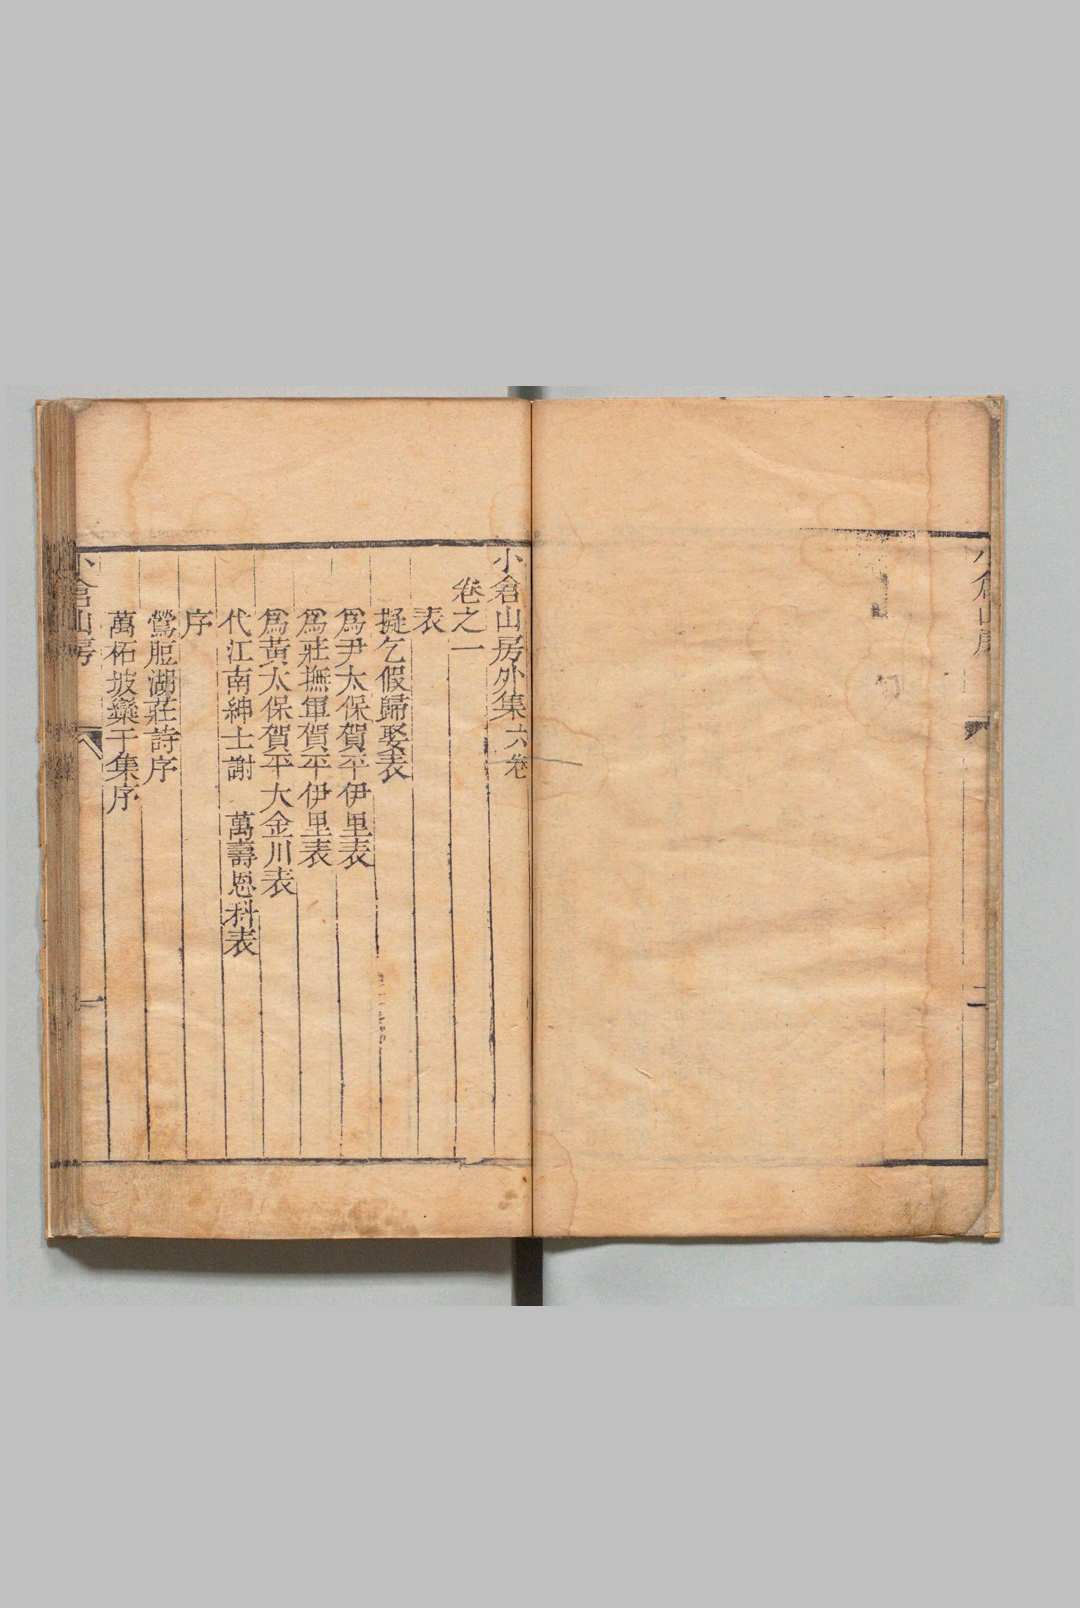 小倉山房
二
小倉山房外集六卷
卷之一
表
擬乞假歸娶表
爲尹太保賀平伊里表
爲莊撫軍賀平伊里表
爲黃太保賀平大金川表
代江南紳士謝 萬壽恩科表
序
鶯脰湖莊詩序
萬柘坡欒于集序
小倉山房
一